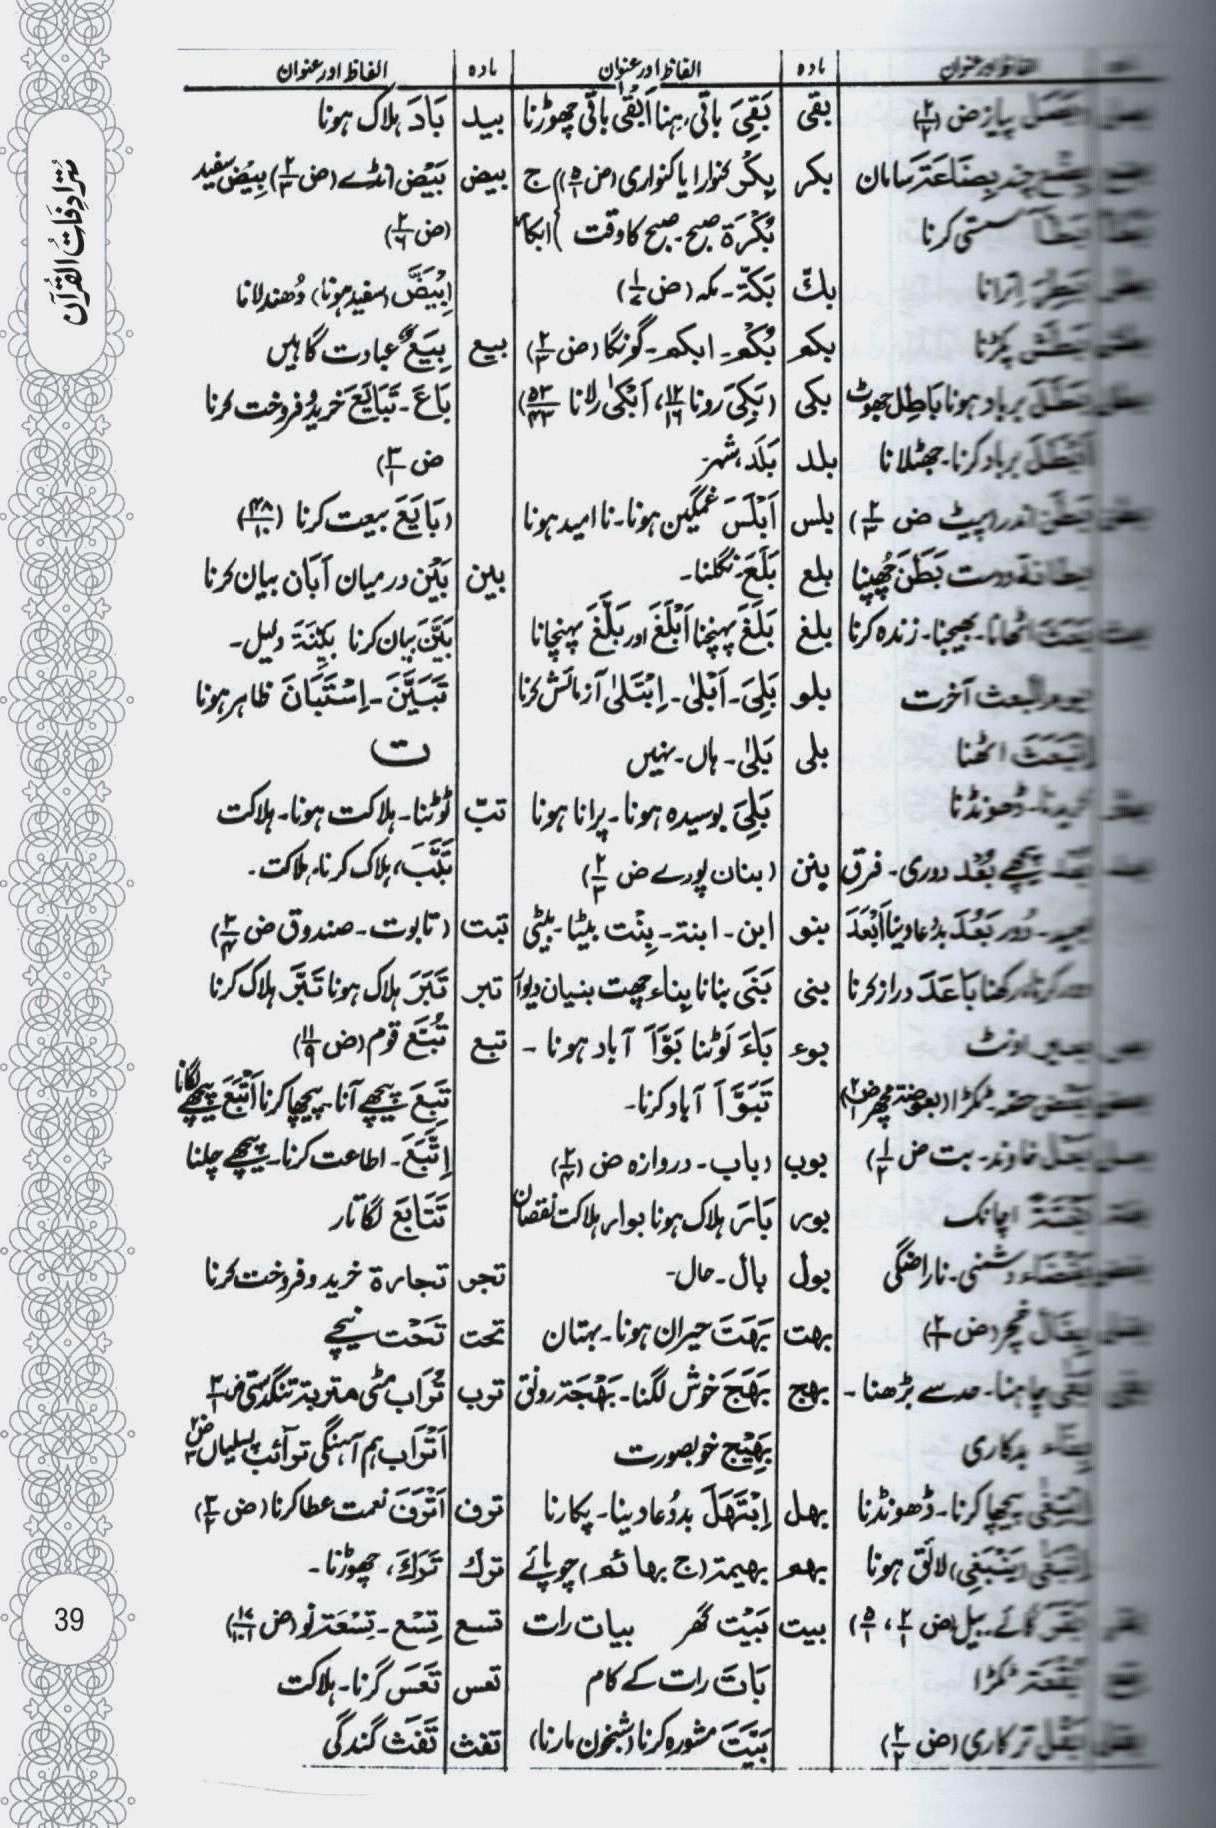 مترادفات القرآن
39
مادہ الفاظ اور عنوان
بَصَل پیاز ض (۲/۲)
بِضْع چند بِضَاعَة سامان
سستی کرنا
بَطِرَ اِترانا
بَطَشَ پکڑنا
بَطَلَ برباد ہونا بَاطِل جھوٹ
اَبْطَلَ برباد کرنا۔ جھٹلانا
بَطْن اندر۔ پیٹ ض (۲/۳)
بطانة دوست بَطَنَ چُھپنا
بَعَثَ اٹھانا۔ بھیجنا۔ زندہ کرنا
یوم البعث آخرت
اِنْبَعَثَ اٹھنا
کریدنا۔ ڈھونڈنا
بَعْد پیچھے بُعْد دوری۔ فرق
بعید۔ دُور بَعُدَ بدُعا دینا اَبْعَدَ
دور کرنا، رکھنا بَاعَدَ دراز کرنا
بعیر اونٹ
بَعْض حصّہ۔ ٹکڑا (بعوضة مچھر ض ۲/۱)
بَعْل خاوند۔ بت ض (۱/۲)
بَغْتَةً اچانک
بَغْضَاء دشمنی۔ ناراضگی
بِغَال خچر (ض ۲/۱)
بَغٰی چاہنا۔ حد سے بڑھنا۔
بِغَاء بدکاری
اِبْتَغٰی پیچھا کرنا۔ ڈھونڈنا
اِنْبَغٰی (یَنْبَغِی) لائق ہونا
بَقَر گائے۔ بیل (ض ۲/۱، ۵/۱)
بُقْعَة ٹکڑا
بَقْل ترکاری (ض ۲/۲)
مادہ الفاظ اور عنوان
بقی بَقِیَ باقی رہنا اَبْقٰی باقی چھوڑنا
بکر بِکْر کنوارا یا کنواری (ض ۵/۱) ج
بُکْرَة صبح۔ صبح کا وقت } ابکار
بكّ بَکَّة۔ مکہ (ض ۱/۷)
بکم بُکْم۔ ابکم۔ گونگا (ض ۲/۳)
بکی (بَکٰی رونا ۱۲/۱۶، اَبْکٰی رلانا ۵۳/۴۳)
بلد بَلَد، شہر
بلس اَبْلَسَ غمگین ہونا۔ نا امید ہونا
بلع بَلَعَ نگلنا۔
بلغ بَلَغَ پہنچنا اَبْلَغَ اور بَلَّغَ پہنچانا
بلو بَلِیَ۔ اَبْلٰی۔ اِبْتَلٰی آزمائش کرنا
بلی بَلٰی۔ ہاں۔ نہیں
بَلِیَ بوسیدہ ہونا۔ پرانا ہونا
بنن (بنان پورے ض ۲/۳)
بنو ابن۔ ابنة۔ بِنْت بیٹا۔ بیٹی
بنی بَنَی بنانا بِنَاء چھت بنیان دیوار
بوء بَاءَ لَوٹنا بَوَّأَ آباد ہونا۔
تَبَوَّأَ آباد کرنا۔
بوب (باب۔ دروازہ ض (۲/۴)
بور بَارَ ہلاک ہونا بوار ہلاکت نقصان
بول بال۔ حال۔
بھت بَهَتَ حیران ہونا۔ بہتان
بھج بَهَجَ خوش لگنا۔ بَهْجَة رونق
بَهِيْج خوبصورت
بھل اِبْتَهَلَ بدُعا دینا۔ پکارنا
بھم بھیمة (ج بھائم) چوپائے
بیت بَیْت گھر بیات رات
بَاتَ رات کے کام
بَیَّتَ مشورہ کرنا (شبخون مارنا)
مادہ الفاظ اور عنوان
بید بَادَ ہلاک ہونا
بیض بَیْض انڈے (ض ۲/۳) بِیْض سفید
(ض ۲/۶)
اِبْیَضَّ (سفید ہونا) دُھندلانا
بیع بِیَعٌ عبادت گاہیں
بَاعَ۔ تَبَایَعَ خرید و فروخت کرنا
ض (۳/۱)
(بَایَعَ بیعت کرنا (۴۸/۱۰)
بین بَیْن درمیان اَبَان بیان کرنا
بَیَّنَ بیان کرنا بَیِّنَة دلیل۔
تَبَیَّنَ۔ اِسْتَبَانَ ظاہر ہونا
ت
تبّ ٹوٹنا۔ ہلاکت ہونا۔ ہلاکت
تَبَّبَ، ہلاک کرنا، ہلاکت۔
تبت (تابوت۔ صندوق ض ۳/۴)
تبر تَبَرَ ہلاک ہونا تَبَّرَ ہلاک کرنا
تبع تُبَّع قوم (ض ۱۱/۹)
تَبِعَ پیچھے آنا۔ پیچھا کرنا اَتْبَعَ پیچھے لگانا
اِتَّبَعَ۔ اطاعت کرنا۔ پیچھے چلنا
تَتَابَعَ لگاتار
تجر تجارة خرید و فروخت کرنا
تحت تَحْت نیچے
ترب تُرَاب مٹی متربة تنگدستی ض ۳/۱
اَتْرَاب ہم آہنگی ترآئب پسلیاں ض ۲/۳
ترف اَتْرَفَ نعمت عطا کرنا (ض ۳/۲)
ترك تَرَكَ، چھوڑنا۔
تسع تِسْع۔ تِسْعَة نَو (ض ۱۷/۱۰۱)
تعس تَعَسَ گرنا۔ ہلاکت
تفث تَفَث گندگی